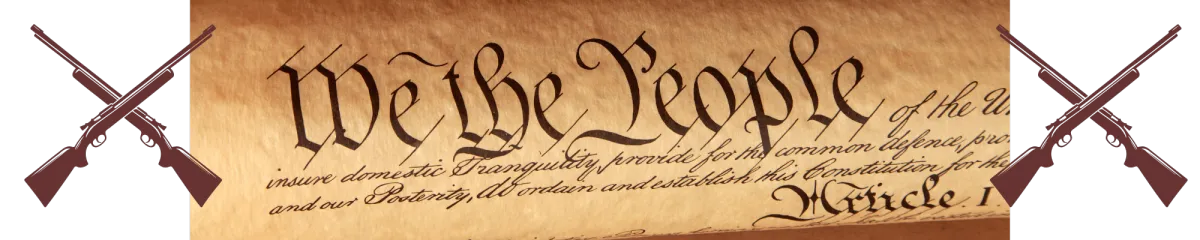 We the People of the
insure domestic Tranquility, provide for the common defence, pro
and our Posterity, do ordain and establish this Constitution for the
Article. I.